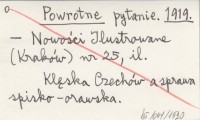 0
Powrotne pytanie. 1919.
- Nowości Ilustrowane
(Kraków) nr 25, il.
Klęska Czechów a sprawa
spisko-orawska.